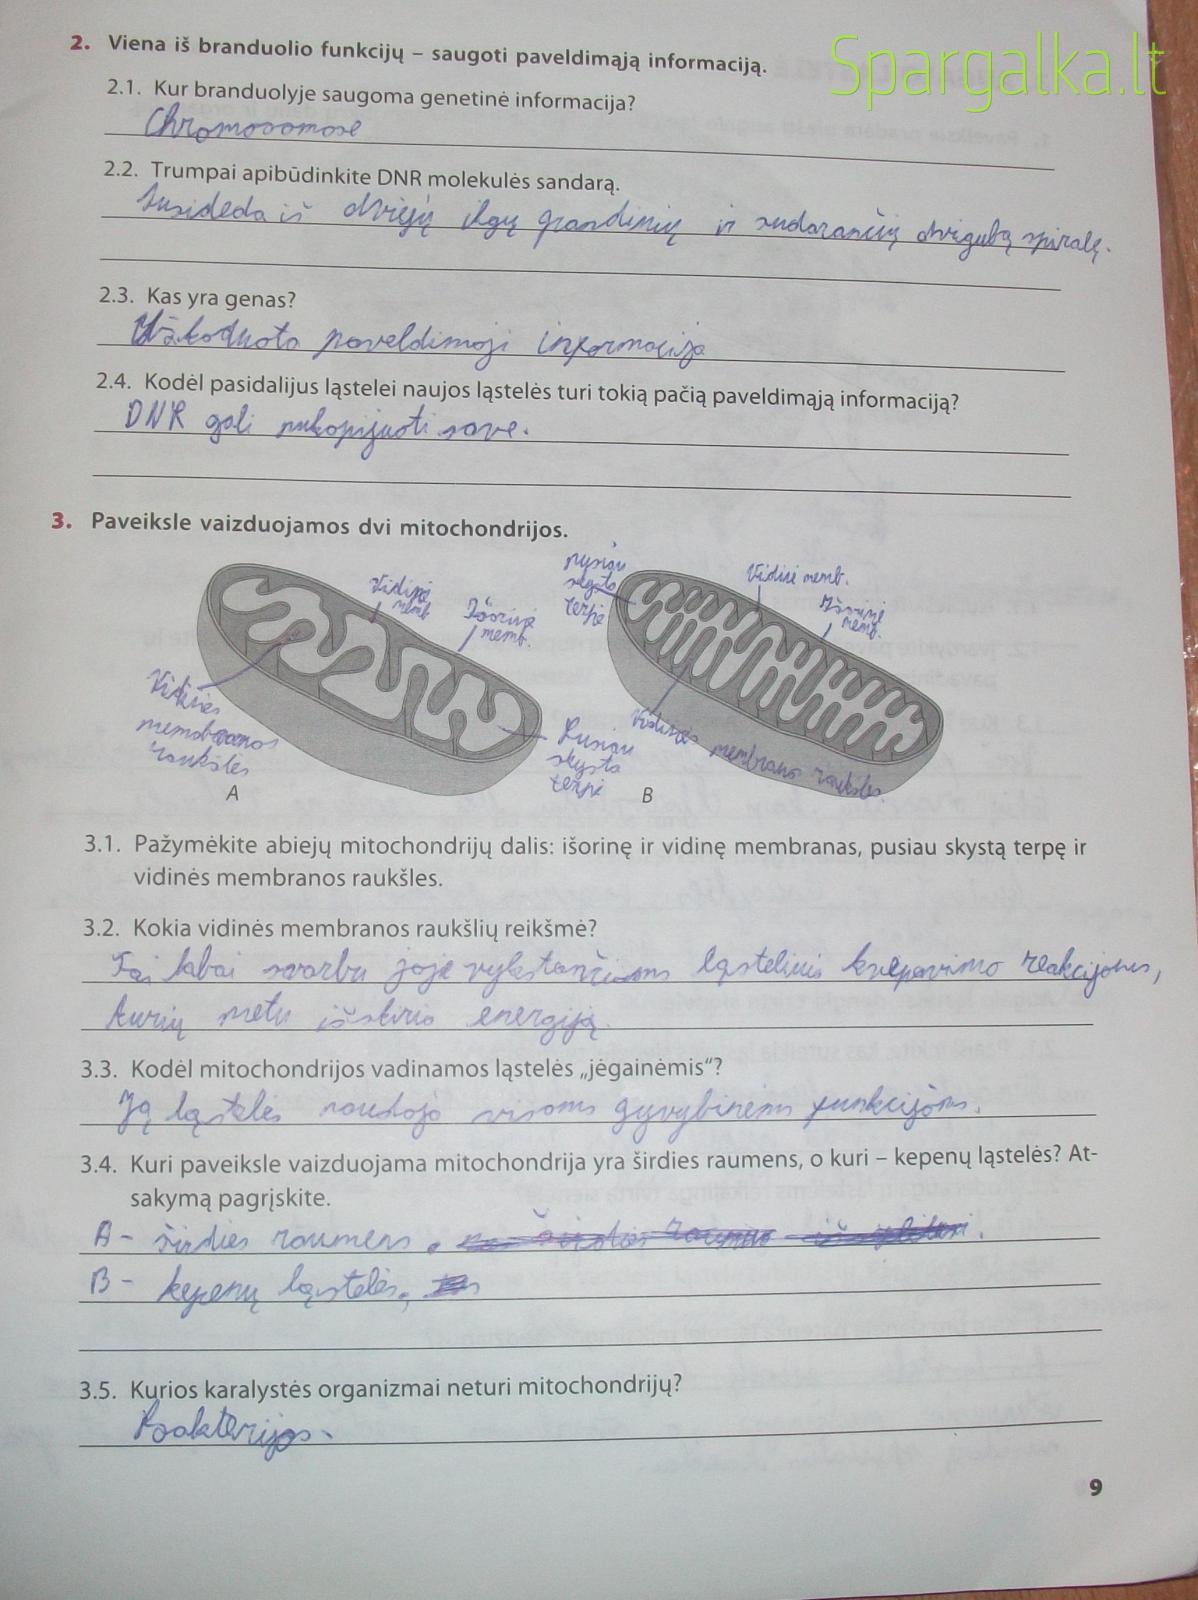 Spargalka.lt
2. Viena iš branduolio funkcijų – saugoti paveldimąją informaciją.
2.1. Kur branduolyje saugoma genetinė informacija?
Chromosomose
2.2. Trumpai apibūdinkite DNR molekulės sandarą.
Susideda iš dviejų ilgų grandinių ir sudarančių dvigubą spiralę.
2.3. Kas yra genas?
Užkoduota paveldimoji informacija
2.4. Kodėl pasidalijus ląstelei naujos ląstelės turi tokią pačią paveldimąją informaciją?
DNR gali nukopijuoti save.
3. Paveiksle vaizduojamos dvi mitochondrijos.
Vidinė
memb
Išorinė
memb.
Vidinės
membranos
raukšlės
Pusiau
skysta
terpė
A
pusiau
skysta
terpė
Vidinė memb.
Išorinė
memb.
Vidinės membranos raukšlės
B
3.1. Pažymėkite abiejų mitochondrijų dalis: išorinę ir vidinę membranas, pusiau skystą terpę ir
vidinės membranos raukšles.
3.2. Kokia vidinės membranos raukšlių reikšmė?
Tai labai svarbu joje vykstančioms ląstelinis kvėpavimo reakcijoms,
kurių metu išskiria energiją.
3.3. Kodėl mitochondrijos vadinamos ląstelės „jėgainėmis“?
Ją ląstelės naudoja visoms gyvybinėms funkcijoms.
3.4. Kuri paveiksle vaizduojama mitochondrija yra širdies raumens, o kuri – kepenų ląstelės? At-
sakymą pagrįskite.
A - širdies raumens.
B - kepenų ląstelės,
3.5. Kurios karalystės organizmai neturi mitochondrijų?
Bakterijos.
9